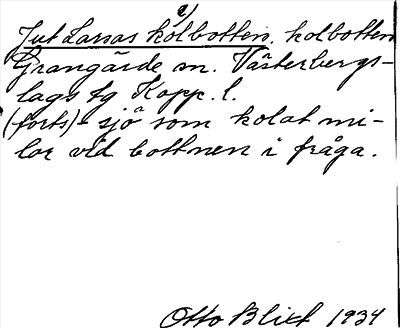 2)
Jut Larsas kolbotten. kolbotten
Grangärde sn. Västerbergs-
lags tg Kopp. l.
(forts)- sjö som kolat mi-
lor vid bottnen i fråga.
Otto Blixt 1934